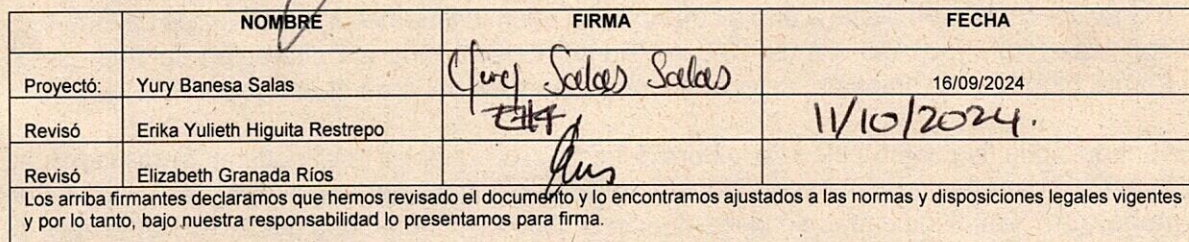 NOMBRE FIRMA FECHA
Proyectó: Yury Banesa Salas Yury Salas Salas 16/09/2024
Revisó Erika Yulieth Higuita Restrepo 11/10/2024.
Revisó Elizabeth Granada Ríos
Los arriba firmantes declaramos que hemos revisado el documento y lo encontramos ajustados a las normas y disposiciones legales vigentes
y por lo tanto, bajo nuestra responsabilidad lo presentamos para firma.